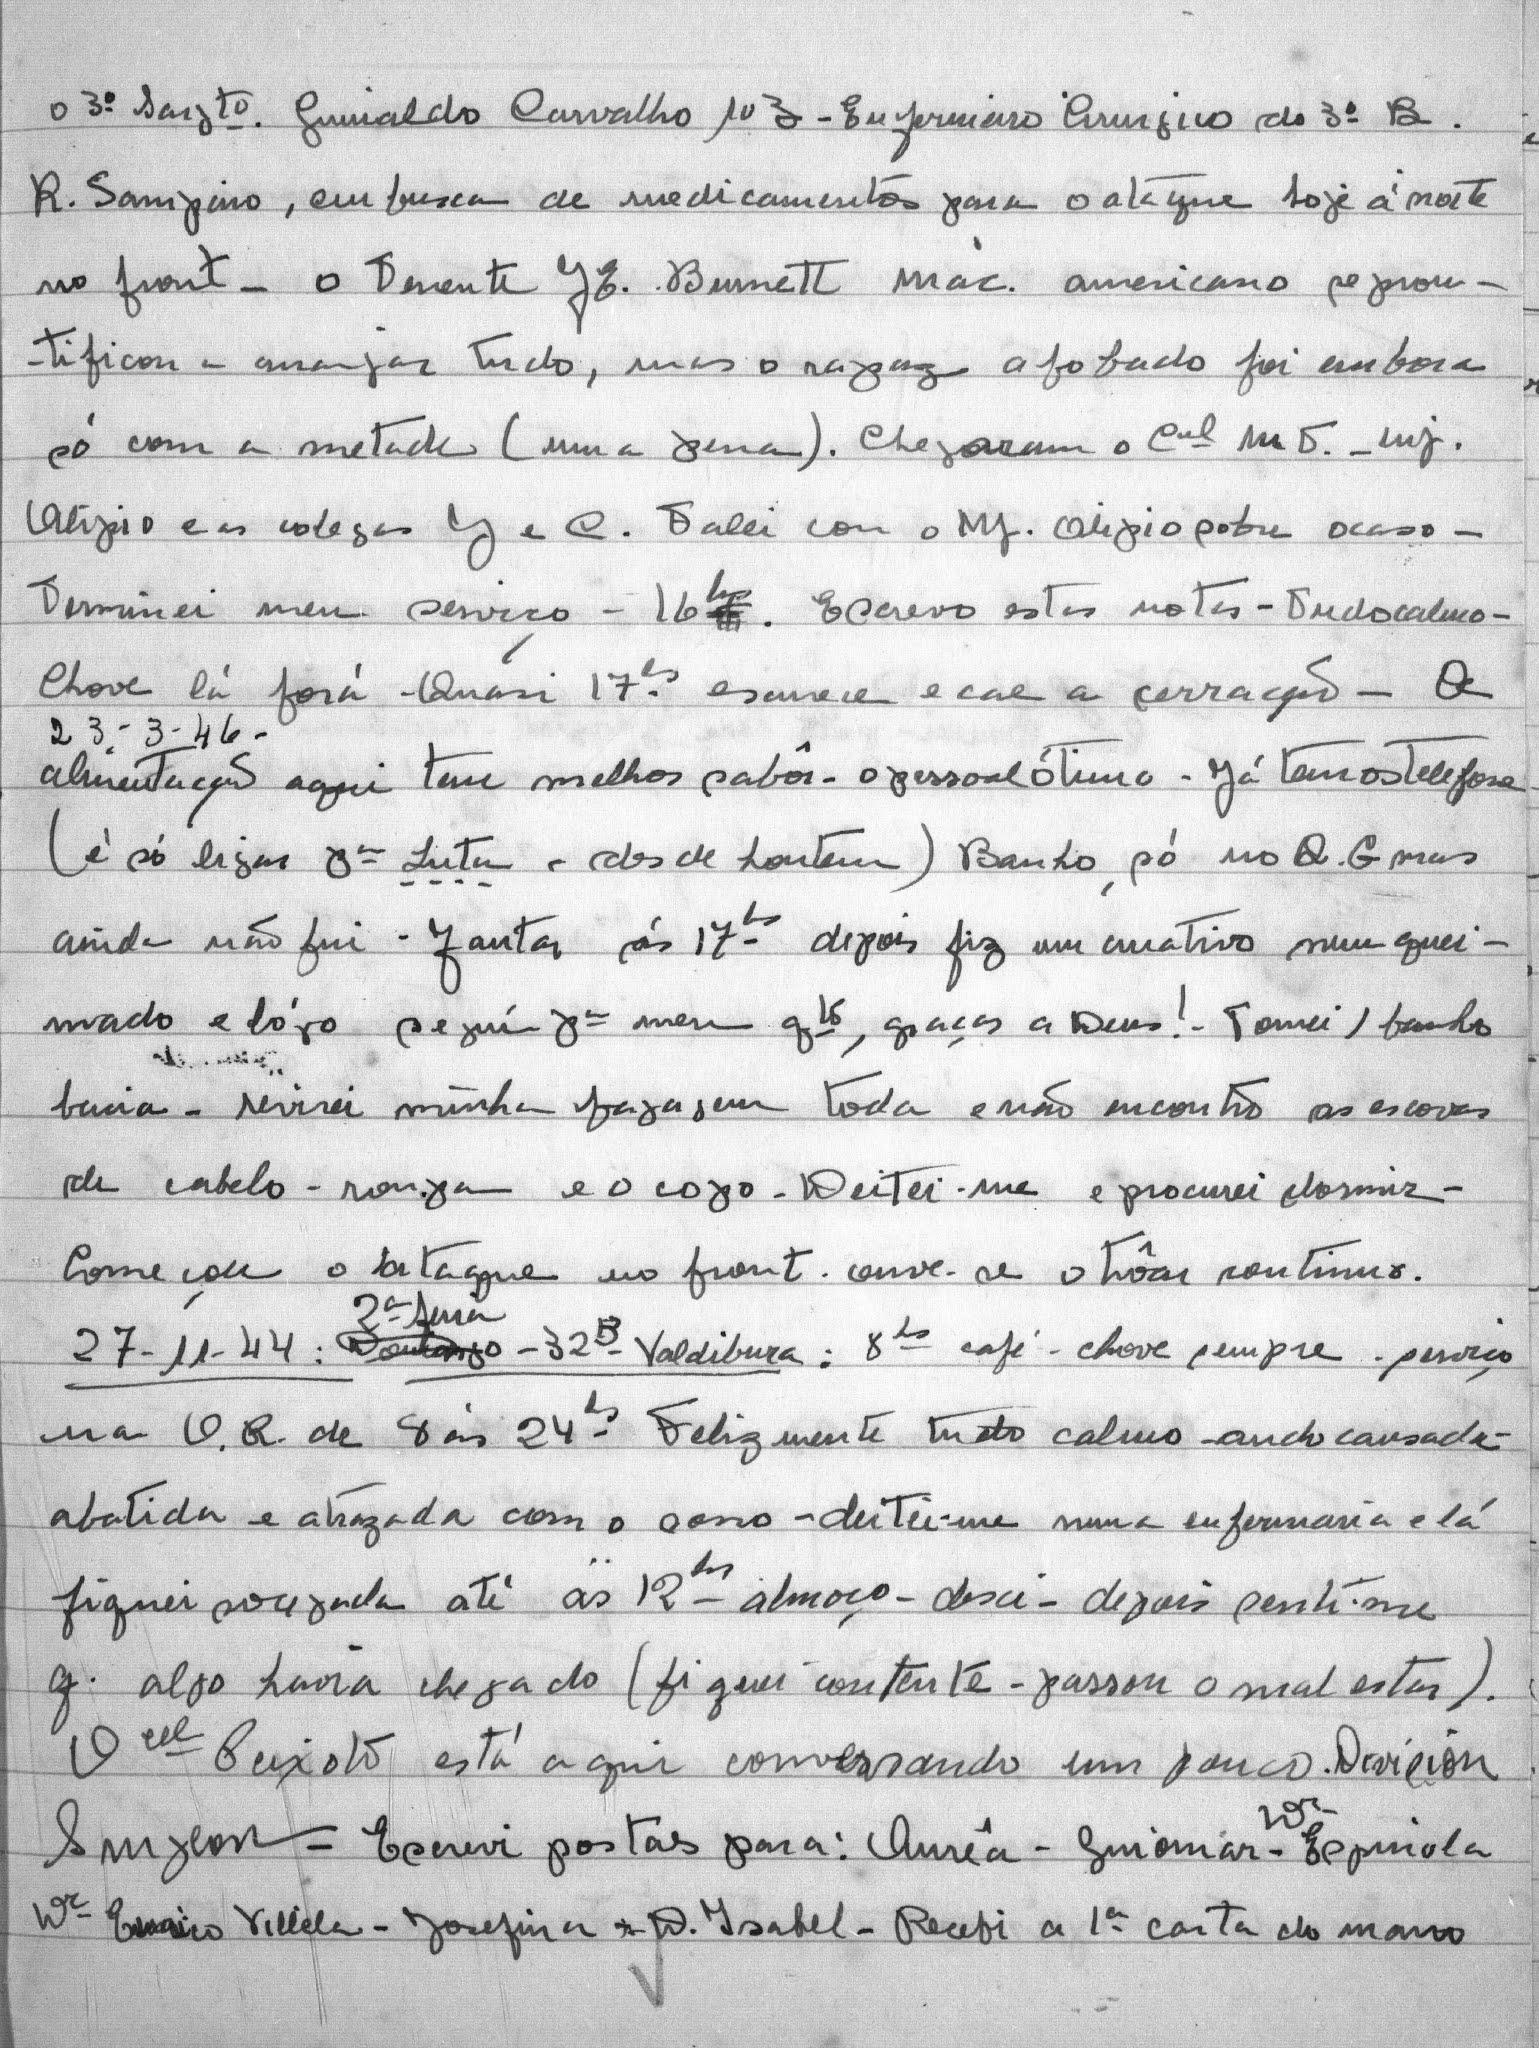 o 3º Sargto. Guinaldo Carvalho 103 - Enfermeiro Cirurgico do 3º B.
R. Sampaio, em busca de medicamentos para o ataque hoje á noite
no front - o Tenente Y E. Burnett Mác. americano se pron-
-tificou a arranjar tudo, mas o rapaz afobado foi embora
só com a metade (uma pena). Chegaram o Cel M D. - Mj.
Alipio e as colegas Y e C. Falei com o Mj. Alipio sobre o caso -
Terminei meu serviço - 16 hs. Escrevo estas notas - Tudo calmo -
Chove lá forá - Quási 17 hs escurece e cae a cerração - A
23-3-46-
alimentação aqui tem melhor sabôr - o pessoal ótimo - Já temos telefone
(é só ligar pa Luta - desde hontem) Banho, só no Q.G mas
ainda não fui - Jantar ás 17 hs depois fiz um curativo num quei-
mado e lógo segui pa meu qto, graças a Deus! - Tomei 1 banho
bacia - revirei minha bagagem toda e não encontro as escovas
de cabelo - roupa e o copo - Deitei-me e procurei dormir -
Começou o ataque no front. ouve-se o trôar continuo.
2ª feira
27-11-44: Domingo - 32 B Valdibura: 8 hs café - chove sempre - serviço
na O.R. de 8 ás 24 hs Felizmente tudo calmo - ando cansada -
abatida e atrazada com o sono - deitei-me numa enfermaria e lá
fiquei socegada até ás 12 hs almoço - desci - depois senti-me
q. algo havia chegado (fiquei contente - passou o mal estar).
O Cel Peixoto está aqui conversando um pouco. Devision
Surgeon = Escrevi postaes para: Auréa - Guiomar - Dr Espinola
Dr Eurico Villela - Josefina - D. Isabel - Recebi a 1ª carta do mano